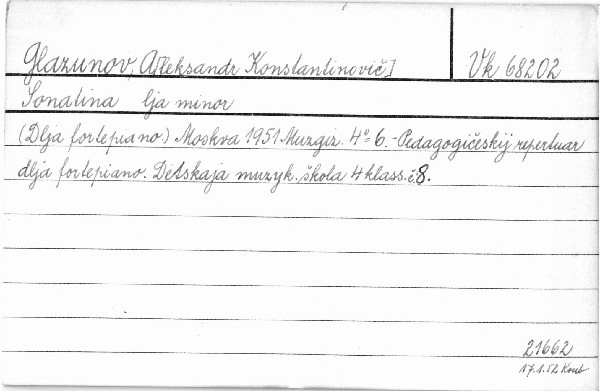 Glazunov, A[leksandr Konstantinovič] Vk 68202
Sonatina lja minor
(Dlja fortepiano.) Moskva 1951 Muzgiz. 4° 6. - Pedagogičeskij repertuar
dlja fortepiano. Detskaja muzyk. škola 4 klass. č. 8.
21662
17.1.52 Kout